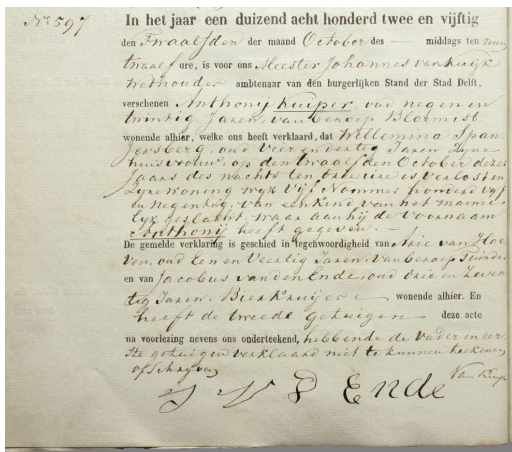 No. 597
In het jaar een duizend acht honderd twee en vijftig
den Twaalfden der maand October des — middags ten
twaalf ure, is voor ons Meester Johannes van Kuijk
Wethouder ambtenaar van den burgerlijken Stand der Stad Delft,
verschenen Anthonij Kuiper, oud negen en
twintig Jaren, van beroep Bloemist
wonende alhier, welke ons heeft verklaard, dat Willemina Span
jersberg, oud Vier en dertig Jaren Zijne
huisvrouw, op den twaalfden October dezes
Jaars des nachts ten drie ure is verlost in
Zijne woning wijk Vijf Nommer honderd vijf
en negentig, van een kind van het manne
lijk geslacht, waar aan hij de Voornaam
Anthonij heeft gegeven. —
De gemelde verklaring is geschied in tegenwoordigheid van Arie van Hoe
ven, oud Een en Veertig Jaren, van beroep Tuinder
en van Jacobus van den Ende, oud drie en Zeven
tig Jaren, Bierkruijer wonende alhier. En
heeft de tweede getuigen deze acte
na voorlezing nevens ons onderteekend, hebbende de Vader en eer
ste getuigen verklaard niet te kunnen teekenen
of Schrijven
J V D Ende
Van Kuijk